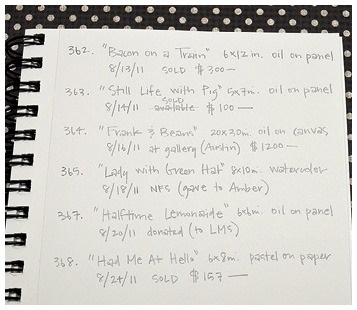 362. "Bacon on a Train" 6x12 in. oil on panel
8/13/11 SOLD $300—
363. "Still Life with Pig" 5x7in. oil on panel
SOLD
8/14/11 available $100—
364. "Frank & Beans" 20x30in. oil on canvas
8/16/11 at gallery (Austin) $1200—
365. "Lady with Green Hat" 8x10in. watercolor
8/18/11 NFS (gave to Amber)
367. "Halftime Lemonade" 6x6in. oil on panel
8/20/11 donated (to LMS)
368. "Had Me At Hello" 6x8in. pastel on paper
8/24/11 SOLD $157—